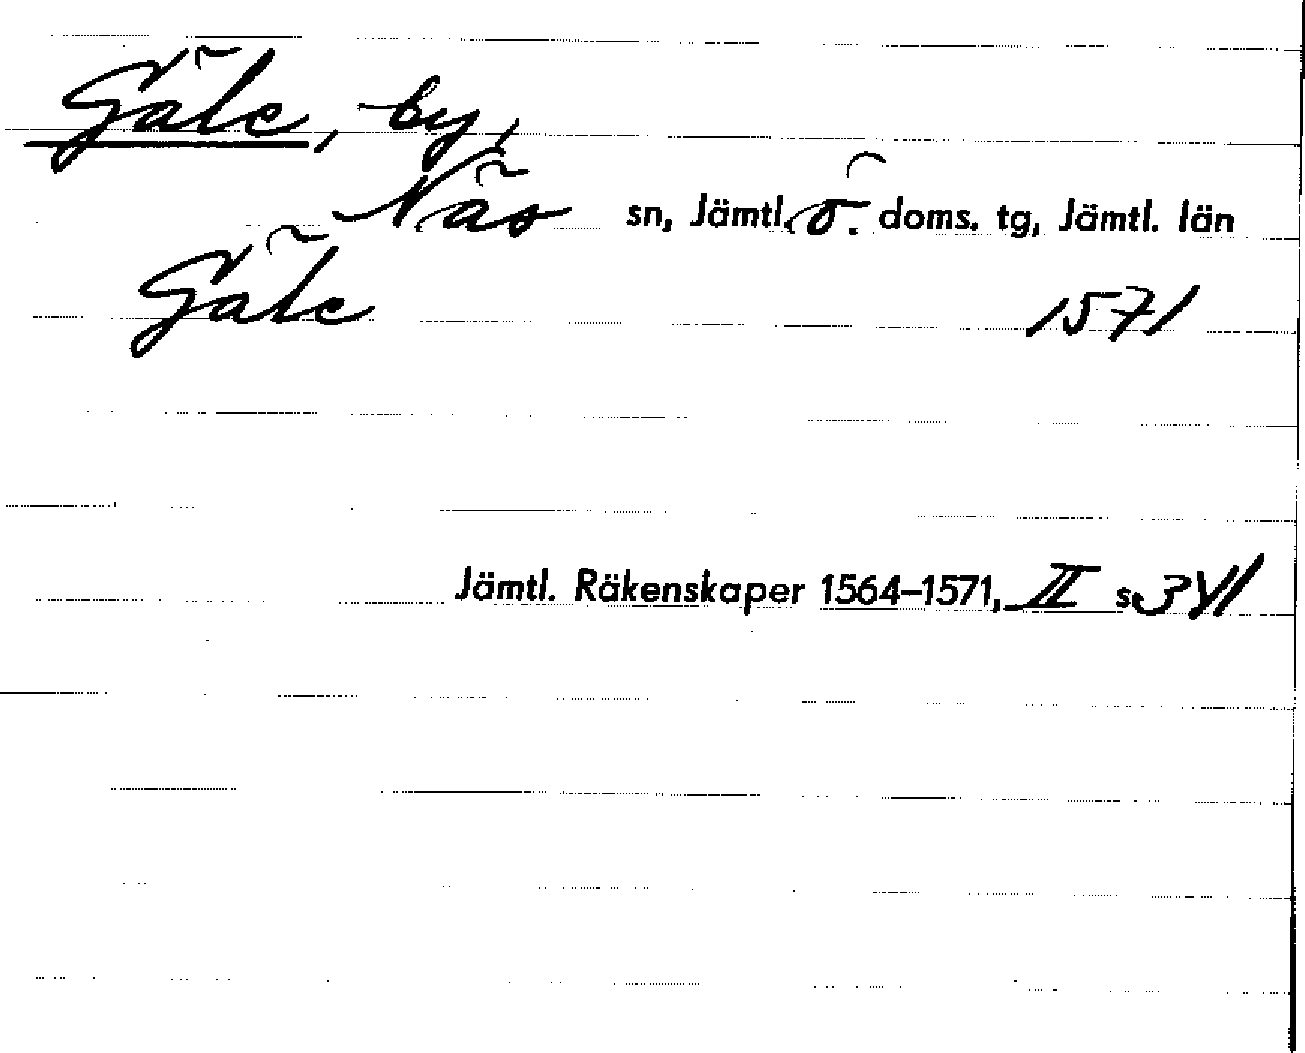 Gäle, by,
Näs sn, Jämtl. ö. doms. tg, Jämtl. län
Gäle 1571
Jämtl. Räkenskaper 1564–1571, II s. 341